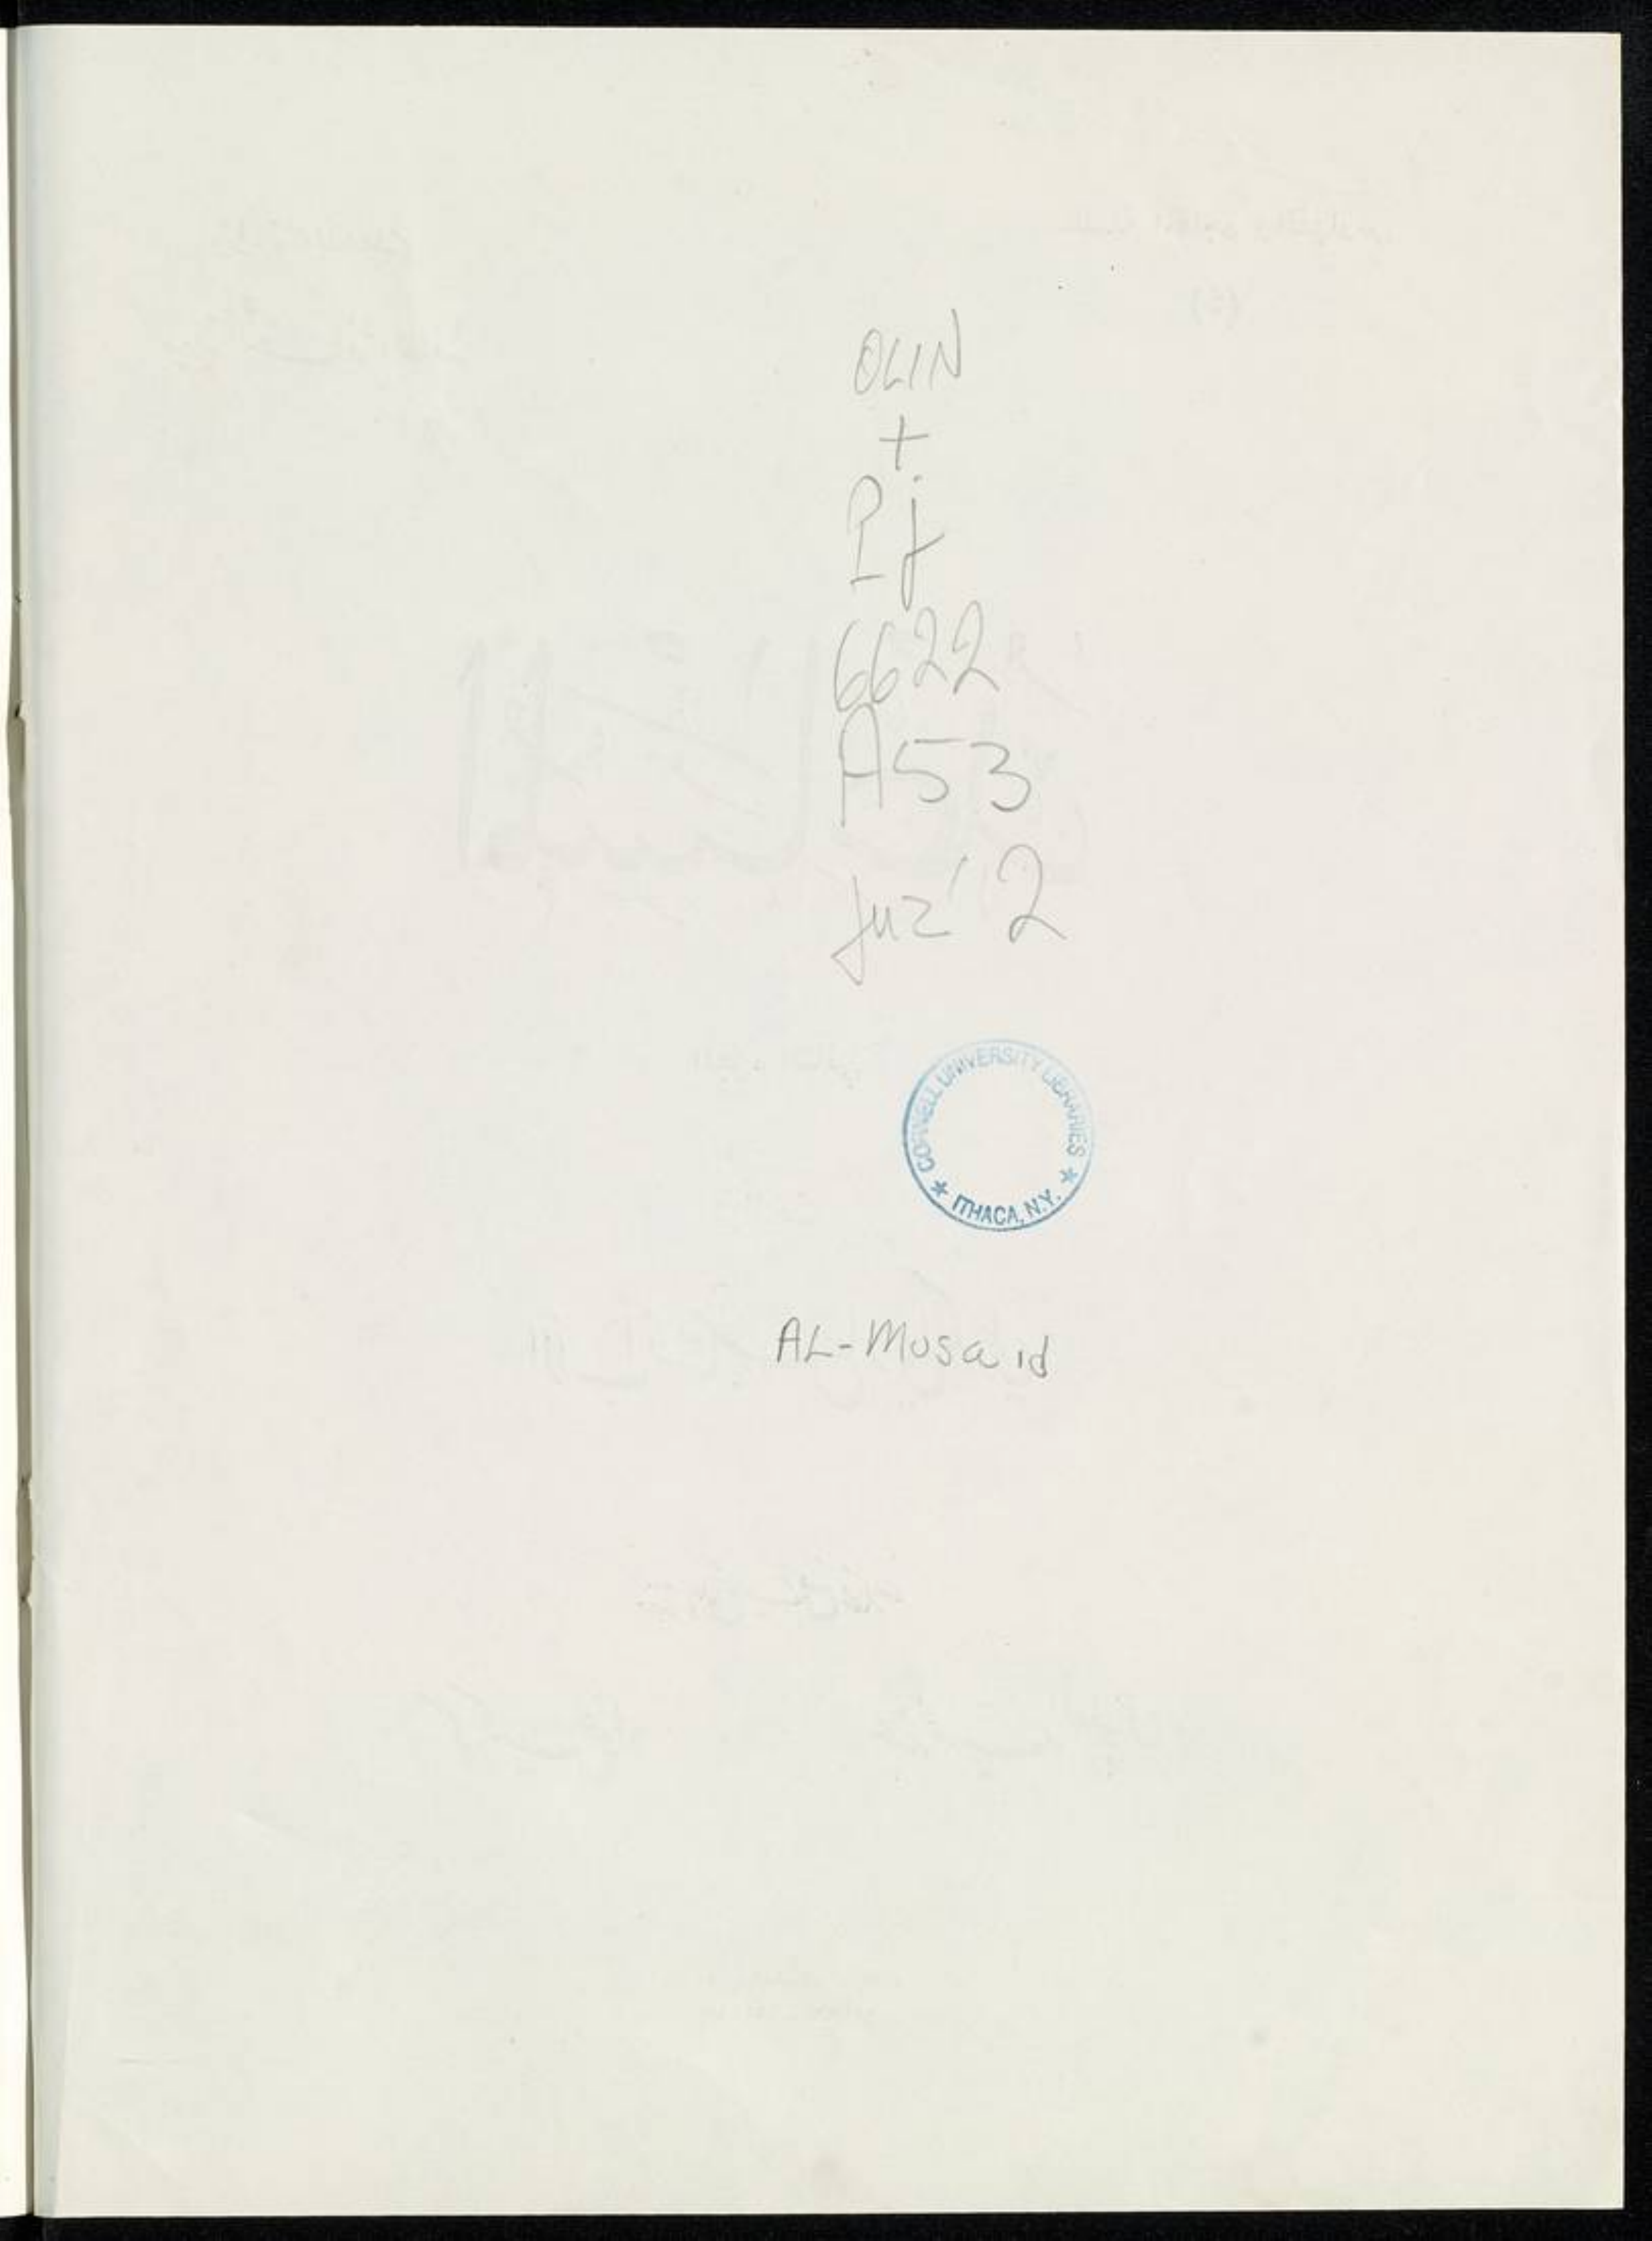 OLIN
+
Pj
6622
A53
juz' 2
CORNELL UNIVERSITY LIBRARIES
* ITHACA, N.Y. *
AL-Musaid